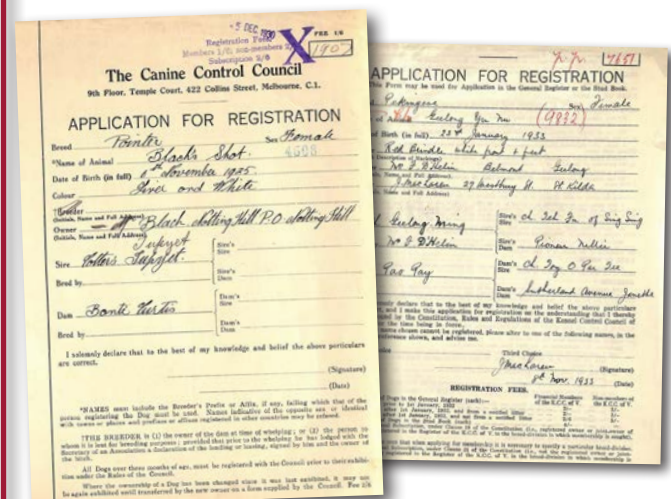 -5 DEC 1930
FEE 1/6
Registration Fees
Members 1/6; non-members 2/
Subscription 2/6
X
1907
The Canine Control Council
9th Floor, Temple Court, 422 Collins Street, Melbourne, C.1.
APPLICATION FOR REGISTRATION
Breed Pointer Sex Female
*Name of Animal Black's Shot.
4568
Date of Birth (in full) November 1925.
Colour Liver and White
Breeder
(Initials, Name and Full Address)
Owner Black Notting Hill P.O. Notting Hill
(Initials, Name and Full Address)
Sire
Sire's Sire
Sire's Dam
Bred by
Dam's Sire
Dam
Dam's Dam
Bred by
I solemnly declare that to the best of my knowledge and belief the above particulars
are correct.
(Signature)
(Date)
*NAMES must include the Breeder's Prefix or Affix, if any, failing which that of the
person registering the Dog must be used. Names indicative of the opposite sex or identical
with towns or places and prefixes or affixes registered in other countries may be refused.
†THE BREEDER is (1) the owner of the dam at time of whelping; or (2) the person to
whom it is lent for breeding purposes; provided that prior to the whelping he has lodged with the
Secretary of an Association a declaration of the lending or leasing, signed by him and the owner of
the bitch.
All Dogs over three months of age, must be registered with the Council prior to their exhibi-
tion under the Rules of the Council.
Where the ownership of a Dog has been changed since it was last exhibited, it may not
be again exhibited until transferred by the new owner on a form supplied by the Council. Fee 2/6
7651
APPLICATION FOR REGISTRATION
This Form may be used for Application in the General Register or the Stud Book.
Pekingese Sex Female
Geelong Yu Nu (9832)
Birth (in full) 22nd January 1933
Red Brindle white feet
Mr F D'Helin Belmont Geelong
J MacLaren 27 Westbury St. St Kilda
Geelong Ming
Sire's Sire
Mr F D'Helin
Sire's Dam Pioneer Nellie
Dam's Sire
Dam's Dam Sutherland Avenue
declare that to the best of my knowledge and belief the above particulars
, and I make this application for registration on the understanding that I thereby
by the Constitution, Rules and Regulations of the Kennel Control Council of
the time being in force.
name chosen cannot be registered, please alter to one of the following names, in the
reference shown, and advise me.
Third Choice
J MacLaren (Signature)
8th Nov. 1933 (Date)
REGISTRATION FEES.